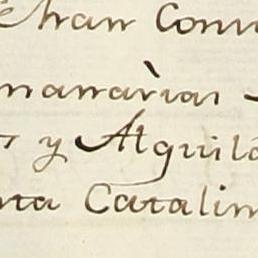 etran Conv
manarias
s y Alquila
nta Catalin